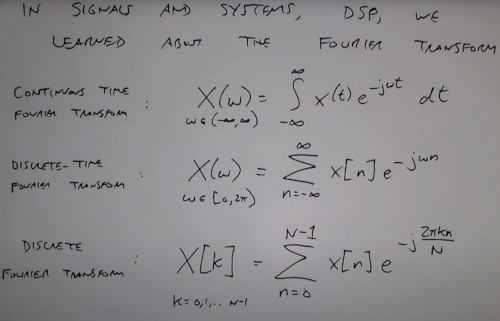 IN SIGNALS AND SYSTEMS, DSP, WE
LEARNED ABOUT THE FOURIER TRANSFORM
CONTINUOUS TIME
FOURIER TRANSFORM : X(ω) = ∫_{-∞}^{∞} x(t) e^{-jωt} dt
ω∈(-∞,∞)
DISCRETE-TIME
FOURIER TRANSFORM : X(ω) = ∑_{n=-∞}^{∞} x[n] e^{-jωn}
ω∈[0,2π)
DISCRETE
FOURIER TRANSFORM : X[k] = ∑_{n=0}^{N-1} x[n] e^{-j\frac{2πkn}{N}}
k=0,1,.. N-1